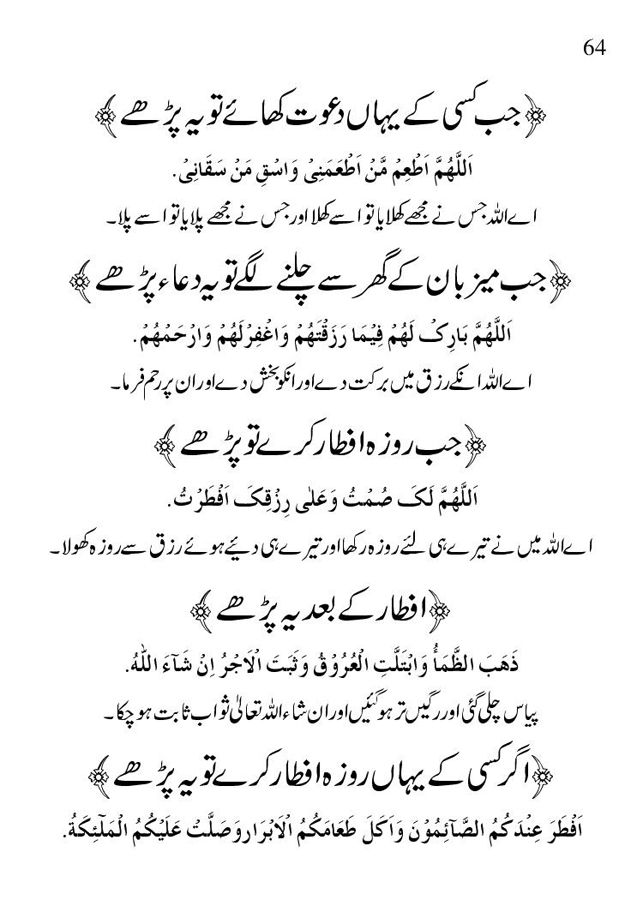 64
﴿جب کسی کے یہاں دعوت کھائے تو یہ پڑھے﴾
اَللَّهُمَّ اَطْعِمْ مَّنْ اَطْعَمَنِیْ وَاسْقِ مَنْ سَقَانِیْ.
اے اللہ جس نے مجھے کھلایا تو اسے کھلا اور جس نے مجھے پلایا تو اسے پلا۔
﴿جب میزبان کے گھر سے چلنے لگے تو یہ دعاء پڑھے﴾
اَللَّهُمَّ بَارِکْ لَهُمْ فِیْمَا رَزَقْتَهُمْ وَاغْفِرْلَهُمْ وَارْحَمْهُمْ.
اے اللہ انکے رزق میں برکت دے اور انکو بخش دے اور ان پر رحم فرما۔
﴿جب روزہ افطار کرے تو پڑھے﴾
اَللَّهُمَّ لَکَ صُمْتُ وَعَلٰی رِزْقِکَ اَفْطَرْتُ.
اے اللہ میں نے تیرے ہی لئے روزہ رکھا اور تیرے ہی دیئے ہوئے رزق سے روزہ کھولا۔
﴿افطار کے بعد یہ پڑھے﴾
ذَهَبَ الظَّمَأُ وَابْتَلَّتِ الْعُرُوْقُ وَثَبَتَ الْاَجْرُ اِنْ شَآءَ اللّٰهُ.
پیاس چلی گئی اور رگیں تر ہو گئیں اور ان شاء اللہ تعالیٰ ثواب ثابت ہو چکا۔
﴿اگر کسی کے یہاں روزہ افطار کرے تو یہ پڑھے﴾
اَفْطَرَ عِنْدَکُمُ الصَّآئِمُوْنَ وَاَکَلَ طَعَامَکُمُ الْاَبْرَارُ وَصَلَّتْ عَلَیْکُمُ الْمَلٰٓئِکَةُ.